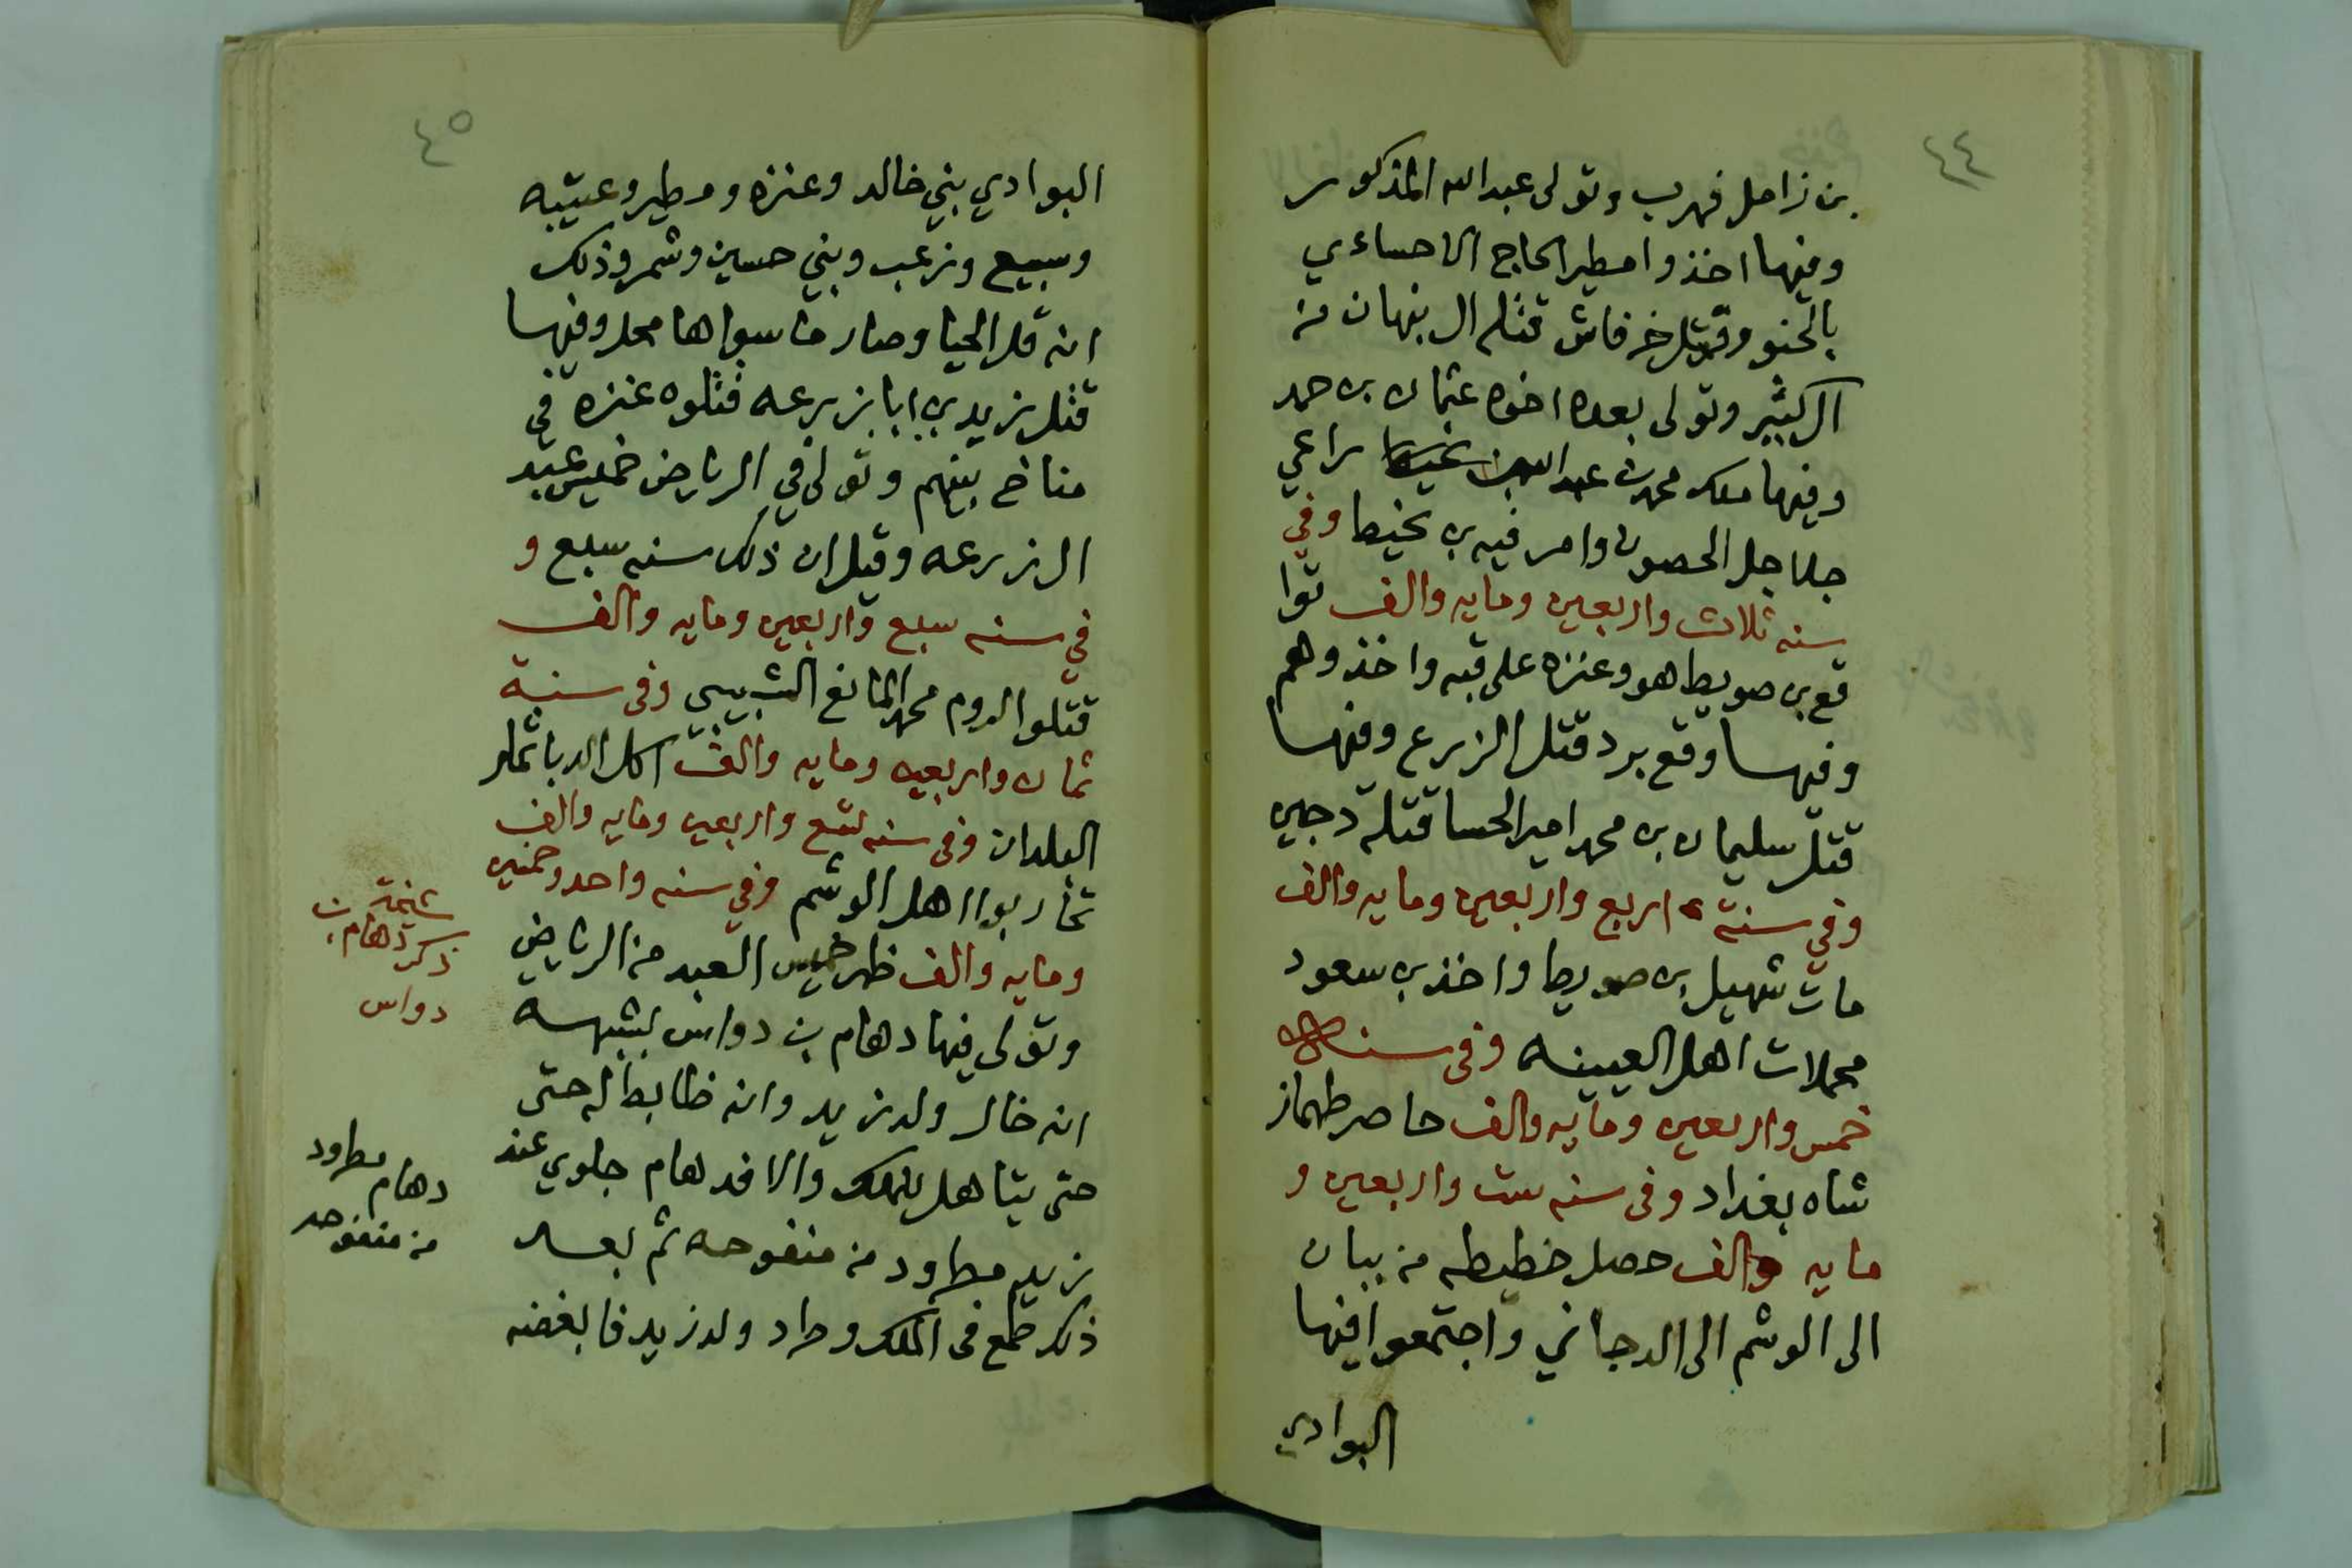 ٤٤
بن زامل فهرب وتولى عبدالله المذكور
وفيها اخذوا مطير الحاج الاحساءي
بالحنو وقتل خرفاش قتله ال نبهان من
ال كثير وتولى بعده اخوه عثمان بن حمد
وفيها ملك محمد بن عبدالله راعي
جلاجل الحصون وامر فيه بن نحيط وفي
سنه ثلاث واربعين ومايه والف توا
قع بن صويط هو وعنزه على قبه واخذوهم
وفيها وقع برد قتل الزرع وفيها
قتل سليمان بن محمد امير الحسا قتله دجين
وفي سنة اربع واربعين ومايه والف
مات شهيل بن صويط واخذ بن سعود
محملات اهل العيينه وفى سنه
خمس واربعين ومايه والف حاصر طهماز
شاه بغداد وفى سنه ست واربعين و
مايه والف حصل خطيطه من بيان
الى الوشم الى الدجاني واجتمعوا فيها
البوادي
٤٥
البوادي بني خالد وعنزه ومطير وعتيبه
وسبيع وزعب وبني حسين وشمر وذلك
انه قل الحيا وصار ما سواها محل وفيها
قتل زيد بن ابا زرعه قتلوه عنزه في
مناخ بينهم وتولى في الرياض خميس عبد
ال زرعه وقيل ان ذلك سنه سبع و
في سنه سبع واربعين ومايه والف
قتلوا الروم محمد المانع الشبيبي وفى سنة
ثمان واربعين ومايه والف اكل الدبا ثمار
البلدان وفى سنه تسع واربعين ومايه والف
تحاربوا اهل الوشم وفي سنه واحد وخمسين
ومايه والف ظهر خميس العبد من الرياض
وتولى فيها دهام بن دواس بشبهه
انه خال ولد زيد وانه ضابط له حتى
حتى يتاهل للملك والا فدهام جلوي عند
زيد مطرود من منفوحه ثم بعد
ذلك طمع فى الملك وطرد ولد زيد فابغضنه
شيخة
ذكر دهام بن
دواس
دهام مطرود
من منفوحه